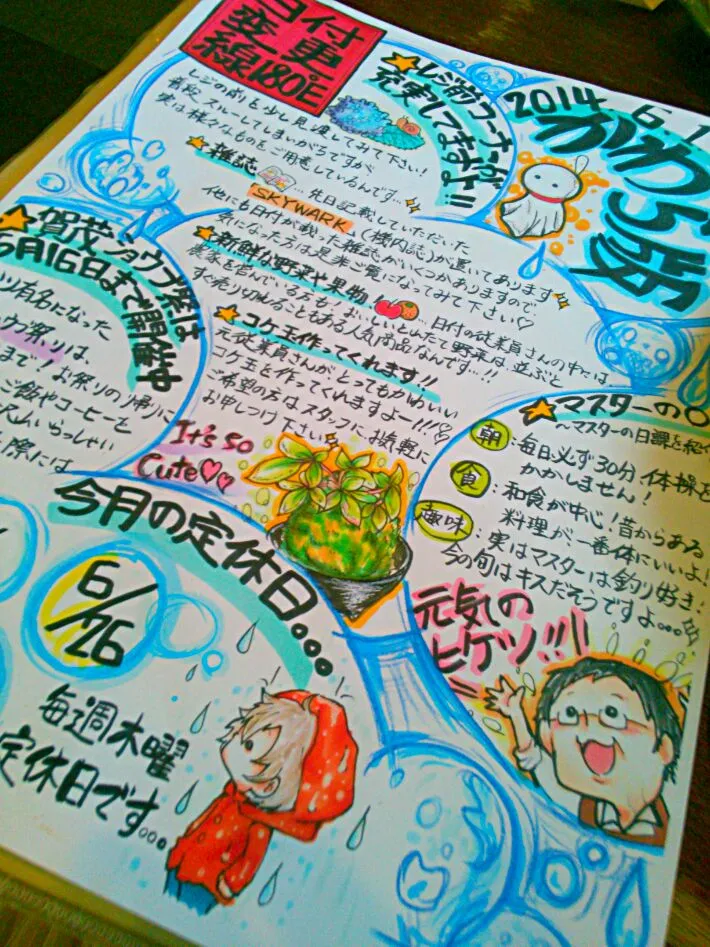 日付
変更
線180°E
2014. 6. 1
かわら版
レジ前コーナーが
充実してますよ!!
レジの前を少し見渡してみて下さい!
普段、スルーしてしまいがちですが
実は様々なものをご用意しているんです…
雑誌
…先日記載していただいた
SKYWARK (機内誌)が置いてあります
他にも日付が載った雑誌がいくつかありますので、
気になった方は是非ご覧になってみて下さい♡
新鮮な野菜や果物!!
…日付の従業員さんの中には
農家を営んでいる方も!おいしいとれたて野菜は、並ぶと
すぐ売り切れることもある人気商品なんです…!!
コケ玉作ってくれます!!
元従業員さんがとってもかわいい
コケ玉を作ってくれますよー!!!
ご希望の方はスタッフにお気軽に
お申しつけ下さい
It's so
Cute♡♡
賀茂ショウブ祭は
6月16日まで開催中
有名になった
ショウブ祭りは、
まで!お祭りの帰りに
ご飯やコーヒーと
沢山いらっしゃい
際には
マスターの
~マスターの日課を紹
朝:毎日必ず30分、体操を
かかしません!
食:和食が中心!昔からある
料理が、一番体にいいよ!
趣味:実はマスターは釣り好き!
今の旬はキスだそうですよ…
元気の
ヒケツ!!!
今月の定休日…
6/26
毎週木曜
定休日です…